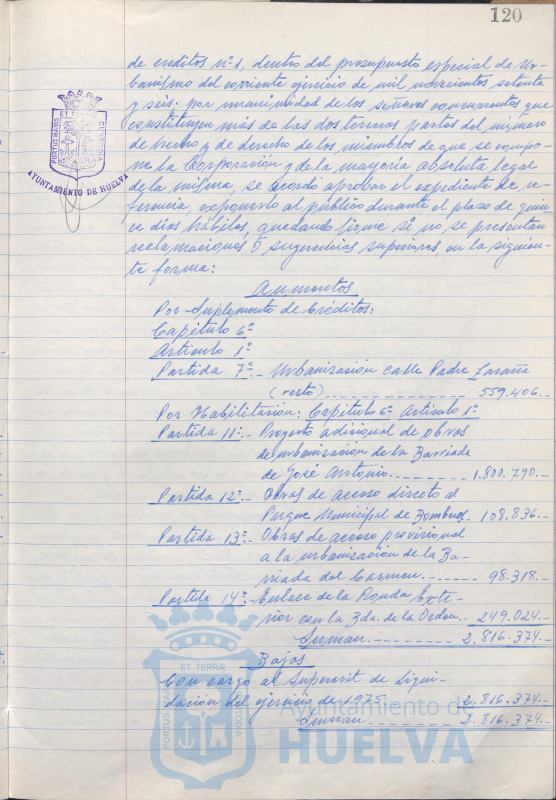 120
de creditos nº 1, dentro del presupuesto especial de Ur-
banismo del corriente ejercicio de mil novecientos setenta
y seis. por unanimidad de los señores concurrentes que
constituyen más de las dos terceras partes del número
de hecho y de derecho de los miembros de que se compo-
ne la Corporación y de la mayoría absoluta legal
de la misma, se acordó aprobar el expediente de re-
ferencia, exponerlo al público durante el plazo de quin-
ce días hábiles, quedando firme si no se presentan
reclamaciones o sugerencias superiores, en la siguien-
te forma:
Aumentos
Por Suplemento de Créditos:
Capítulo 6º
Artículo 1º
Partida 7ª.- Urbanización calle Padre Laraña
(resto) 559.406.-
Por Habilitación: Capítulo 6º Artículo 1º
Partida 11ª.- Proyecto adicional de obras
de urbanización de la Barriada
de José Antonio 1.800.790.-
Partida 12ª.- Obras de acceso directo al
Parque Municipal de Bomberos 108.836.-
Partida 13ª.- Obras de acceso provisional
a la urbanización de la Ba-
rriada del Carmen. 98.318.-
Partida 14ª.- Enlace de la Ronda Exte-
rior con la Bda. de la Orden. 249.024.-
Suman. 2.816.374.-
Bajas
Con cargo al Superavit de Liqui-
dación del ejercicio de 1975 2.816.374.-
Suman. 2.816.374.-
PORTUS MARIS ET TERRÆ CUSTODIA
AYUNTAMIENTO DE HUELVA
PORTUS MARIS ET TERRÆ CUSTODIA
Ayuntamiento de
HUELVA